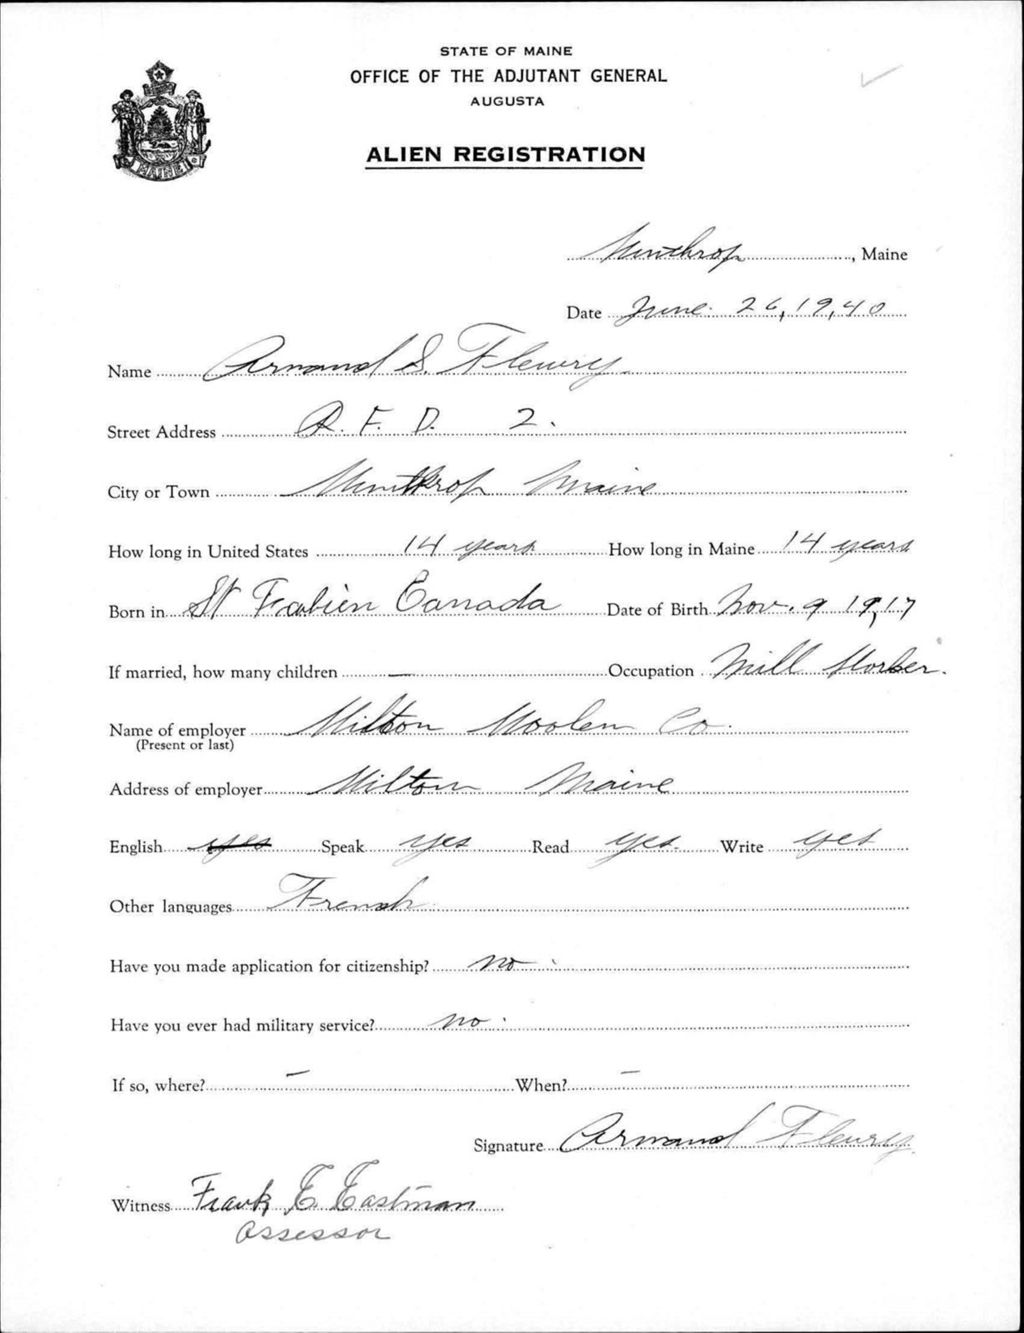 STATE OF MAINE
OFFICE OF THE ADJUTANT GENERAL
AUGUSTA
ALIEN REGISTRATION
MAINE
Winthrop, Maine
Date June. 26, 19,40
Name Armand S. Fleury.
Street Address R. F. D. 2.
City or Town Winthrop Maine
How long in United States 14 years How long in Maine 14 years
Born in St Fabien Canada Date of Birth Nov. 9 19,17
If married, how many children — Occupation Mill Worker.
Name of employer Milton Woolen Co.
(Present or last)
Address of employer Milton Maine
English yes Speak yes Read yes. Write yes
Other languages French
Have you made application for citizenship? no.
Have you ever had military service? no.
If so, where? — When? —
Signature Armand Fleury
Witness Frank E. Eastman
Assessor